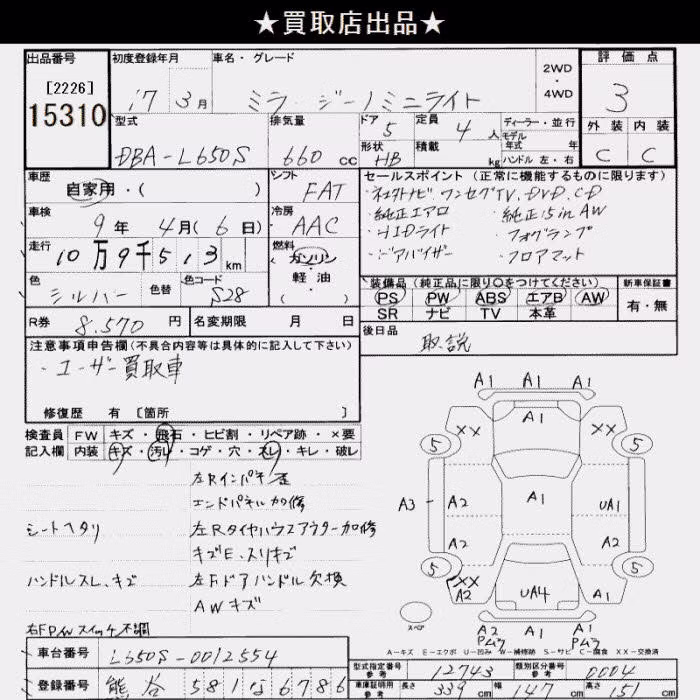 ★買取店出品★
出品番号 初度登録年月 車名・グレード 2WD・4WD 評価点
[2226]
15310
17 3月 ミラ・ジーノミニライト 3
型式 排気量 ドア 5 定員 4人 ディーラー・並行 外装 内装
モデル年式 年式
DBA-L650S 660cc 形状 HB 積載 kg ハンドル左・右 C C
車歴 シフト セールスポイント(正常に機能するものに限ります)
自家用・( ) FAT ・ワンセグTV、DVD、CD
車検 冷房 ・純正エアロ ・純正15inAW
9年 4月(6日) AAC ・HIDライト ・フォグランプ
走行 燃料 ・フロアマット
10万9千513km ガソリン・軽油・( )
色 色替 色コード 装備品(純正品に限り○をつけてください) 新車保証書
シルバー S28 PS PW ABS エアB AW 有・無
SR ナビ TV 本革
R券 8.570円 名変期限 月 日 後日品
注意事項申告欄(不具合内容等は具体的に記入して下さい) 取説
・ユーザー買取車
修復歴 有 [箇所 ]
検査員 FW キズ・飛石・ヒビ割・リペア跡・×要
記入欄 内装 キズ・汚レ・コゲ・穴・スレ・キレ・破レ
左Rインパネ歪
エンドパネル加修
シートヘタリ 左Rタイヤハウスアウター加修
キズE、スリキズ
ハンドルスレ、キズ 左Fドアハンドル欠損
AWキズ
右FP/Wスイッチ不調
A1 A1 A1
XX A1 XX
5 5
A3 A2 A1 UA1
A2 A2
5 XX 5
A2 UA4 A1
スペア
A2 A1 A1
A-キズ E-エクボ U-凹み W-補修跡 S-サビ C-腐食 XX-交換済
車台番号 L650S-0012554
型式指定番号 参考 12743 類別区分番号 参考 0004
登録番号 熊谷 581 な 6786
車庫証明用 参考 長さ 339cm 幅 147cm 高さ 151cm